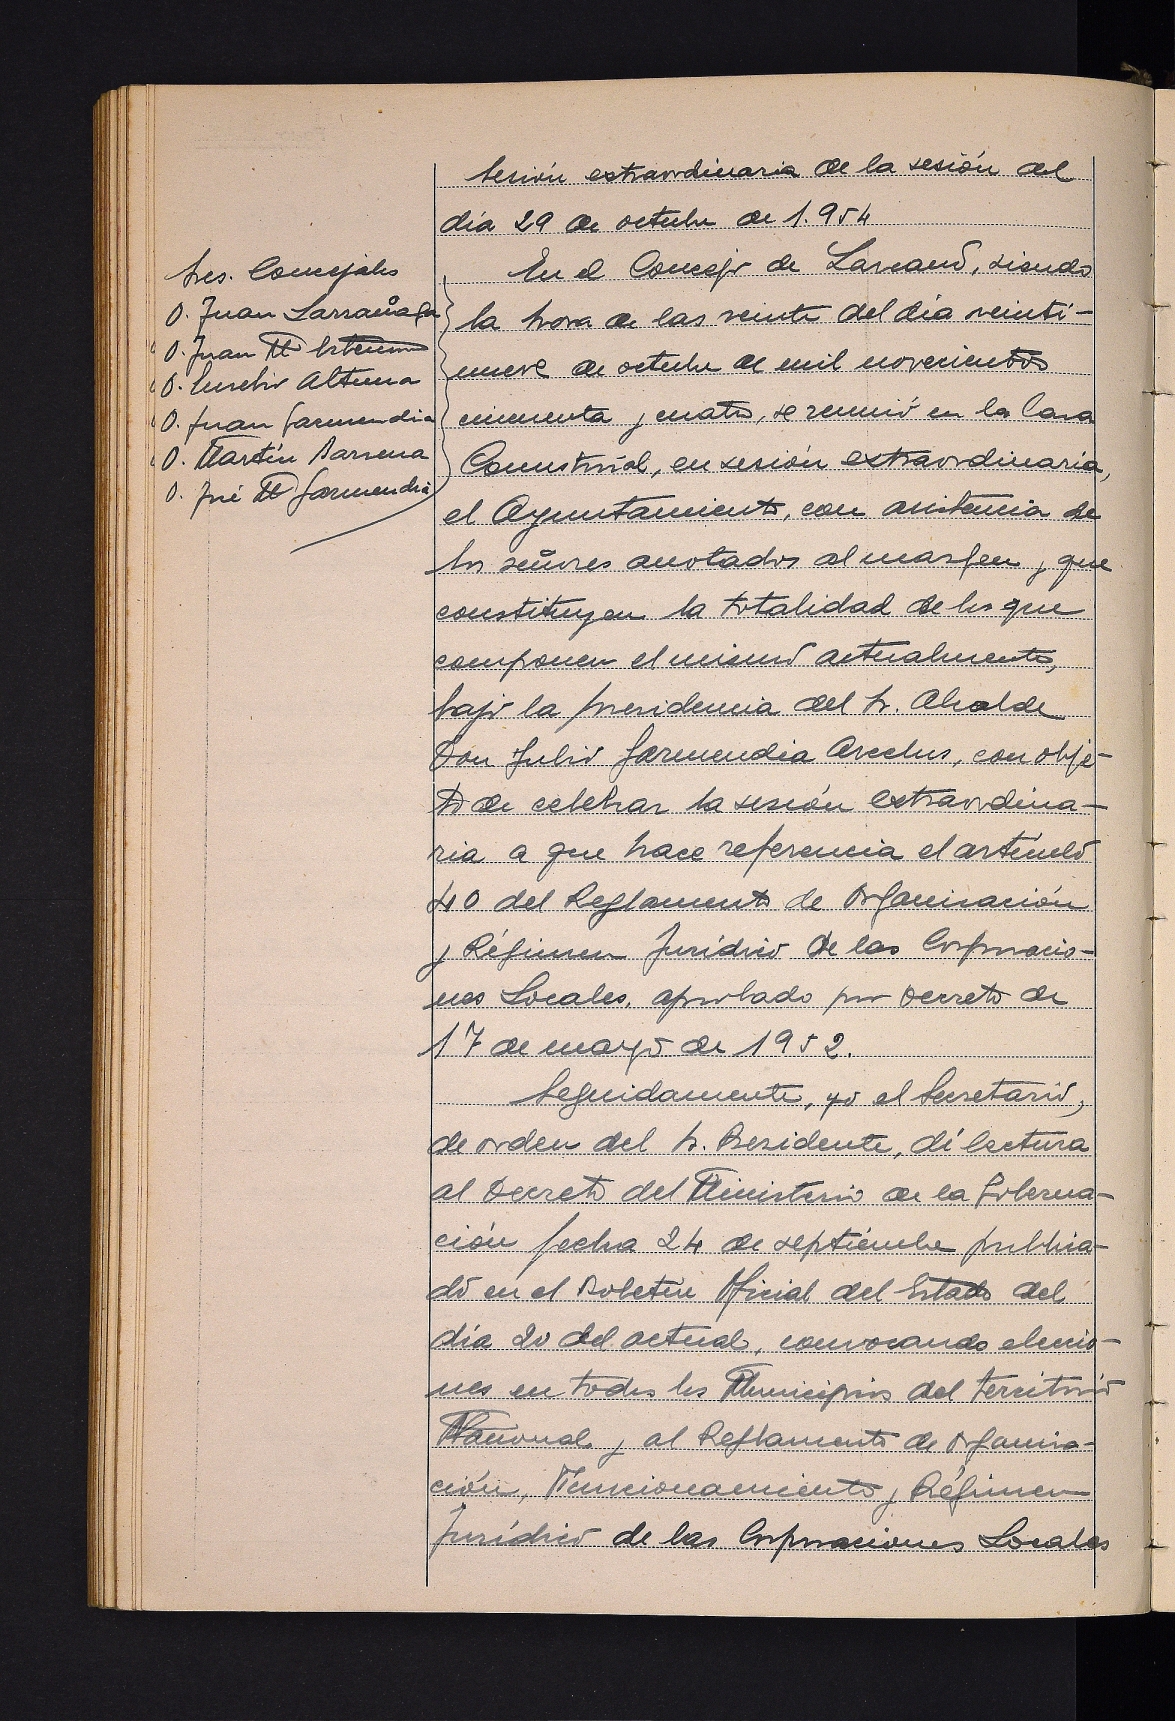 Sesión extraordinaria de la sesión del
día 29 de octubre de 1.954
Sres. Concejales
D. Juan Larrañaga
D. Juan Mª
D. Eusebio Altuna
D. Juan Garmendia
D. Martín Barrena
D. José Mª Garmendia
En el Concejo de Larraul, siendo
la hora de las veinte del día veinti-
nueve de octubre de mil novecientos
cincuenta y cuatro, se reunió en la Casa
Consistorial, en sesión extraordinaria,
el Ayuntamiento, con asistencia de
los señores anotados al margen y que
constituyen la totalidad de los que
componen el mismo actualmente,
bajo la presidencia del Sr. Alcalde
Don Julio Garmendia Arcelus, con obje-
to de celebrar la sesión extraordina-
ria a que hace referencia el artículo
40 del Reglamento de Organización
y Régimen Jurídico de las Corporacio-
nes Locales, aprobado por Decreto de
17 de mayo de 1952.
Seguidamente, yo el Secretario,
de orden del Sr. Presidente, dí lectura
al Decreto del Ministerio de la Goberna-
ción fecha 24 de septiembre publica-
do en el Boletín Oficial del Estado del
día 20 del actual, convocando eleccio-
nes en todos los Municipios del territorio
Nacional y al Reglamento de Organiza-
ción, Funcionamiento y Régimen
Jurídico de las Corporaciones Locales